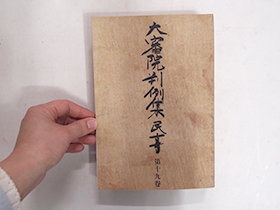 大審院判例集民事
第十九巻